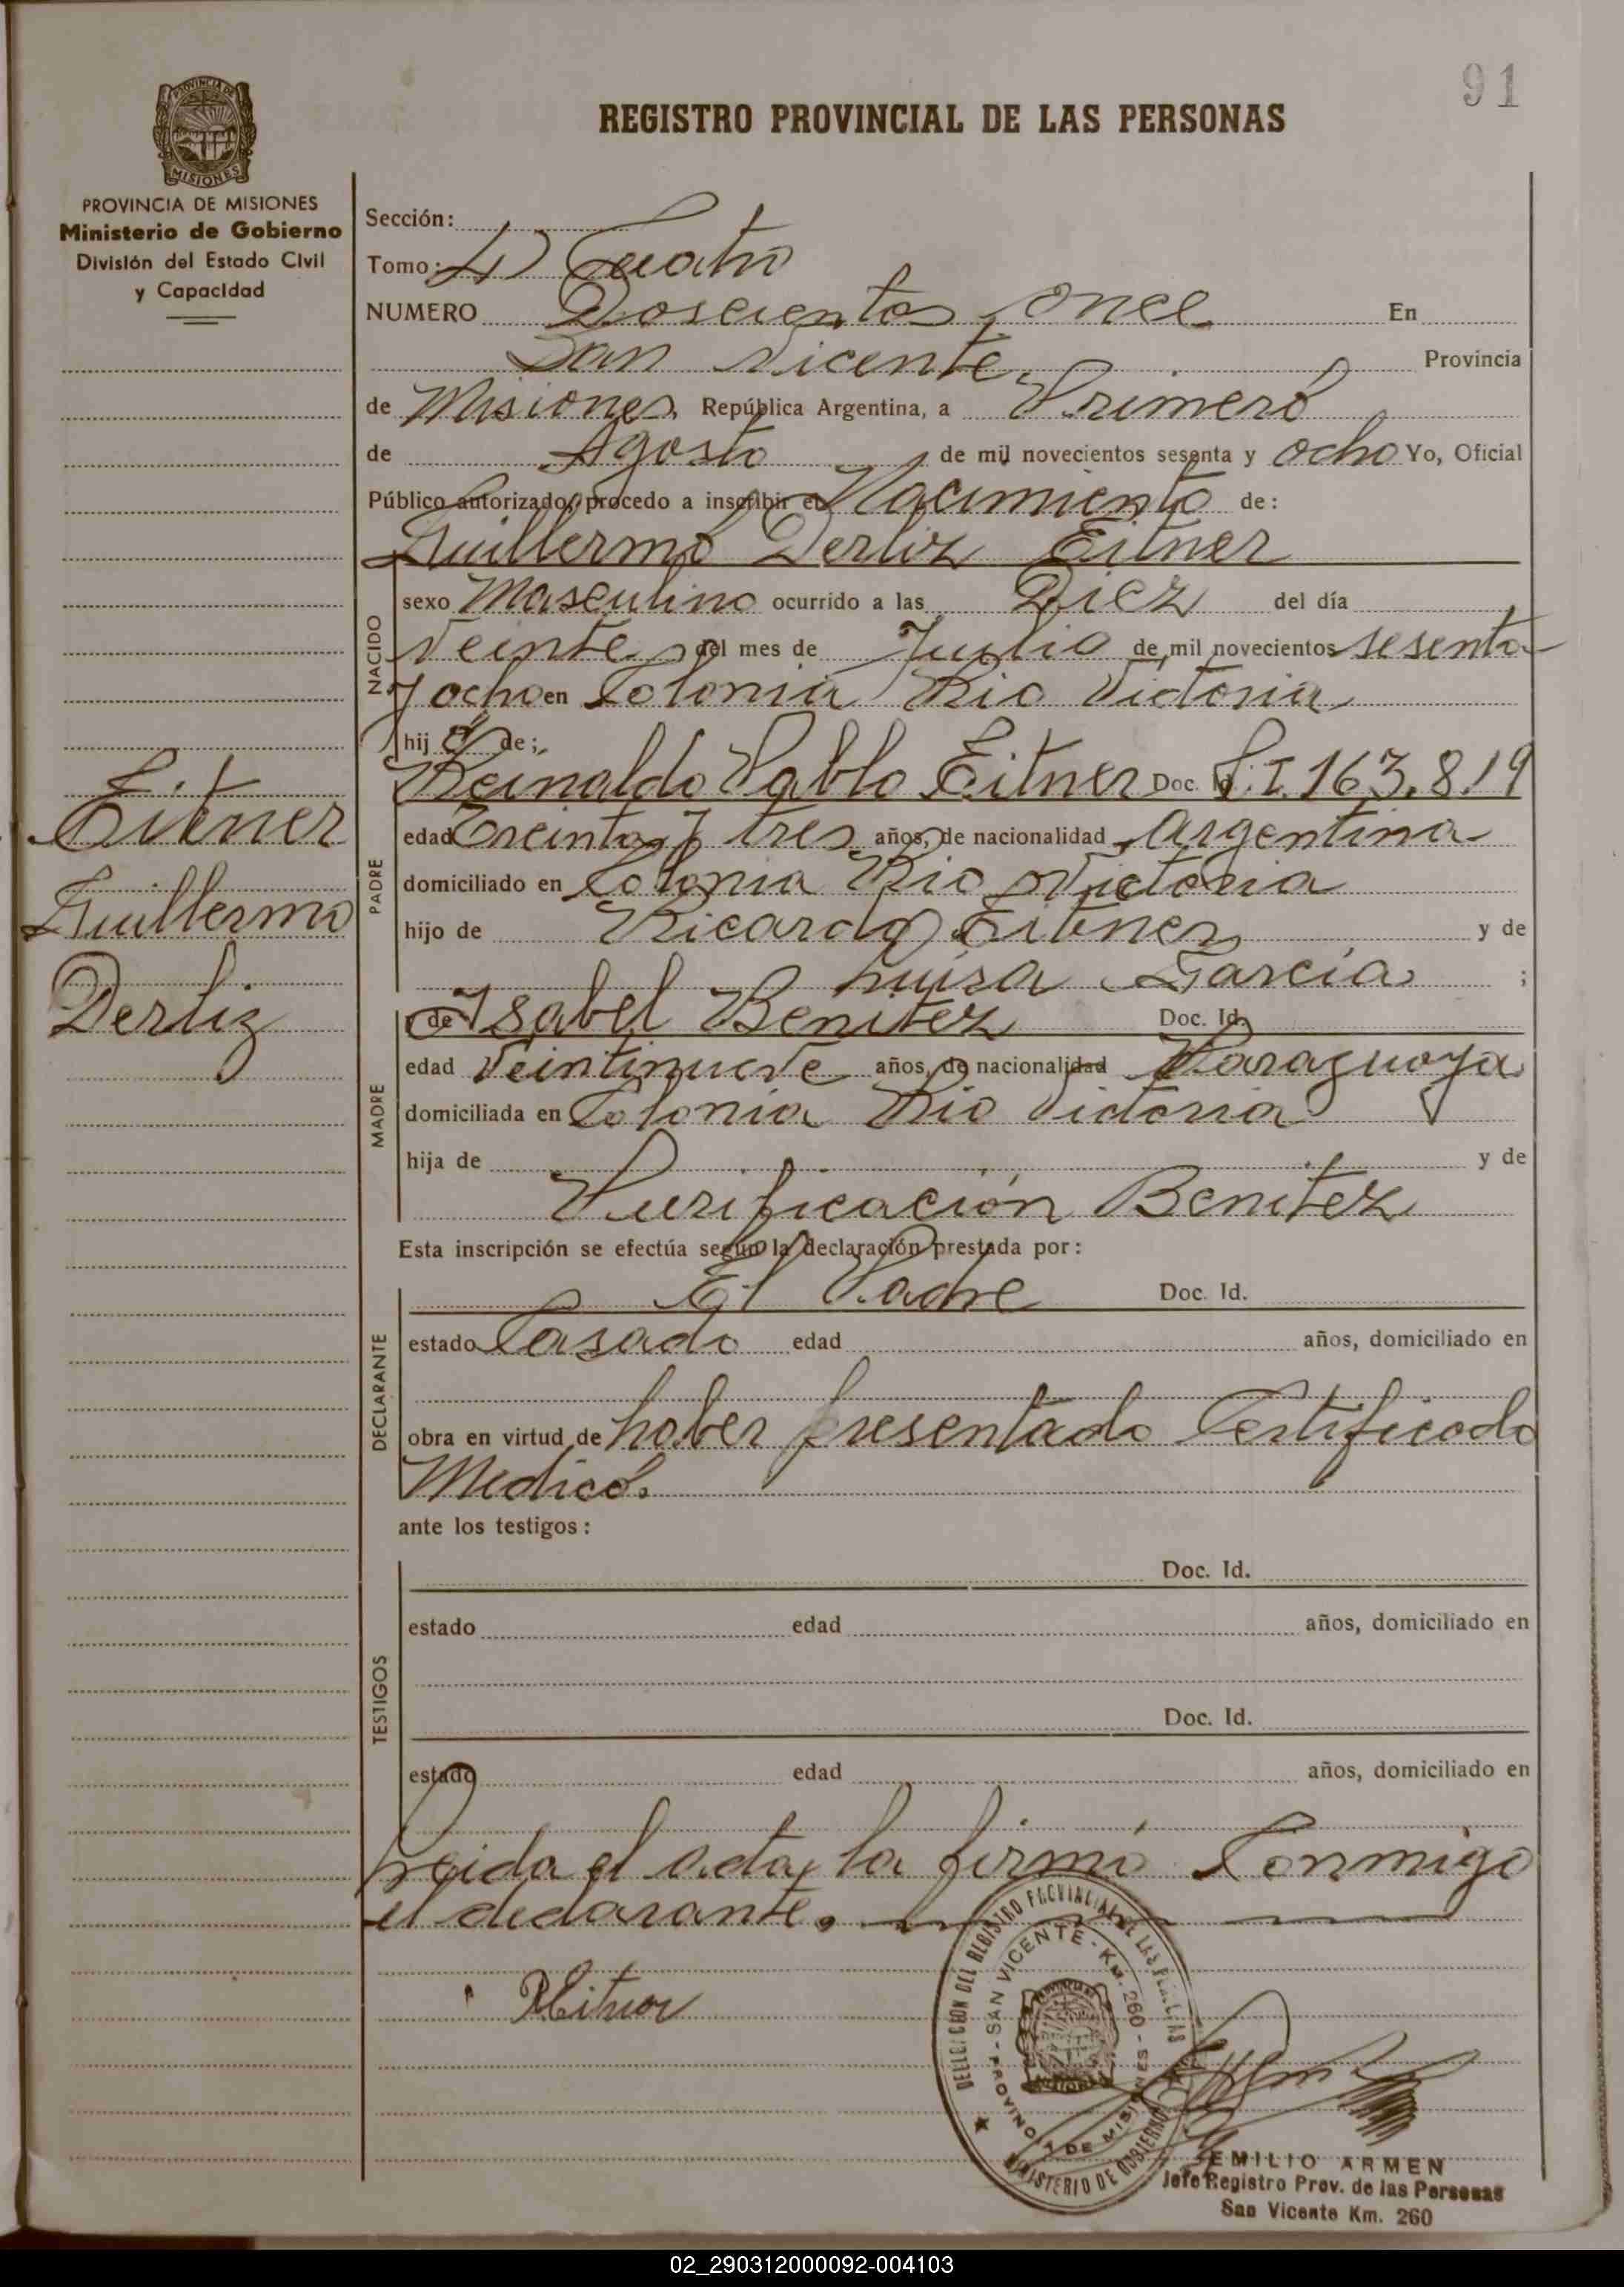 91
REGISTRO PROVINCIAL DE LAS PERSONAS
PROVINCIA DE
MISIONES
PROVINCIA DE MISIONES
Ministerio de Gobierno
División del Estado Civil
y Capacidad
Sección:
Tomo: 4) Cuatro
NUMERO Doscientos once En
San Vicente, Provincia
de Misiones, República Argentina, a Primero
de Agosto de mil novecientos sesenta y ocho Yo, Oficial
Público autorizado, procedo a inscribir el Nacimiento de:
Guillermo Derliz Eitner
NACIDO
sexo Masculino ocurrido a las Diez del día
Veinte del mes de Julio de mil novecientos sesenta
y ocho en Colonia Rio Victoria
hij o de;
Eitner
Guillermo
Derliz
PADRE
Reinaldo Pablo Eitner Doc. Id. L.I. 163.819
edad Treinta y tres años, de nacionalidad Argentina
domiciliado en Colonia Rio Victoria
hijo de Ricardo Eitner y de
Luisa Garcia ;
MADRE
y de Isabel Benitez Doc. Id.
edad Veintinueve años, de nacionalidad Paraguaya
domiciliada en Colonia Rio Victoria
hija de y de
Purificación Benitez
Esta inscripción se efectúa según la declaración prestada por:
DECLARANTE
El Padre Doc. Id.
estado Casado edad años, domiciliado en
obra en virtud de haber presentado Certificado
Medico.
ante los testigos:
TESTIGOS
Doc. Id.
estado edad años, domiciliado en
Doc. Id.
estado edad años, domiciliado en
Leida el acta, la firmó Conmigo
el declarante.
REitner
DELEGACION DEL REGISTRO PROVINCIAL DE LAS PERSONAS
SAN VICENTE - KM. 260 -
PROVINCIA DE MISIONES
MINISTERIO DE GOBIERNO
EMILIO ARMEN
Jefe Registro Prov. de las Personas
San Vicente Km. 260
02_290312000092-004103